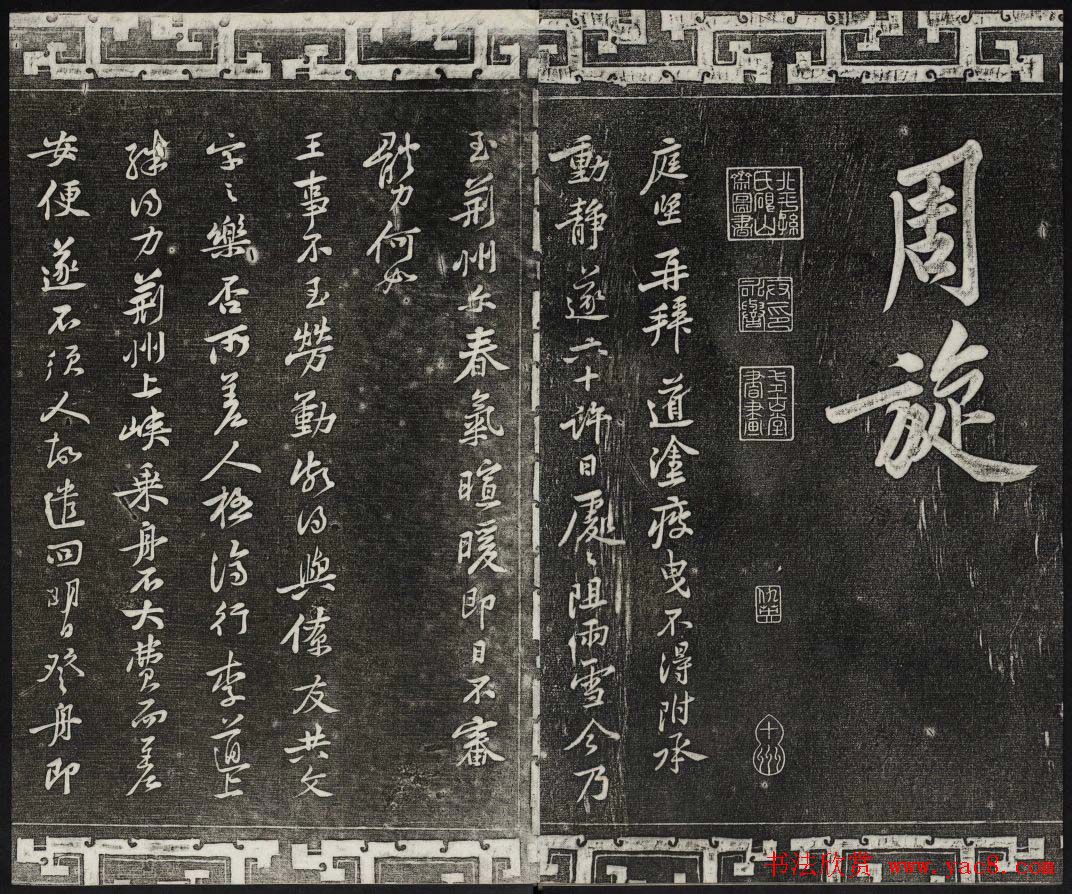 周旋
北平孫氏硯山齋圖書
仇英
十洲
庭堅再拜道塗疲曳不得附承
動靜遂六十許日處〻阻雨雪今乃
至荊州尔春氣暄暖即日不審
體力何如
王事不至勞勤頗得與僚友共文
字之樂否所差人極濟行李道上
殊得力荊州上峽乘舟不大費而差
安便遂不須人故遣回明日登舟即
书法欣赏 www.yac8.com